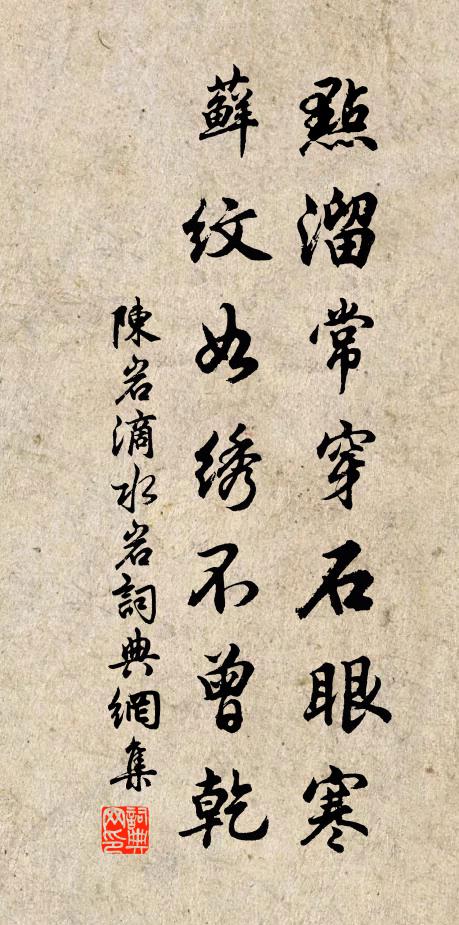 點溜常穿石眼寒
蘚紋如绣不曾乾
陳岩滴水岩詞典網集
詞典网印